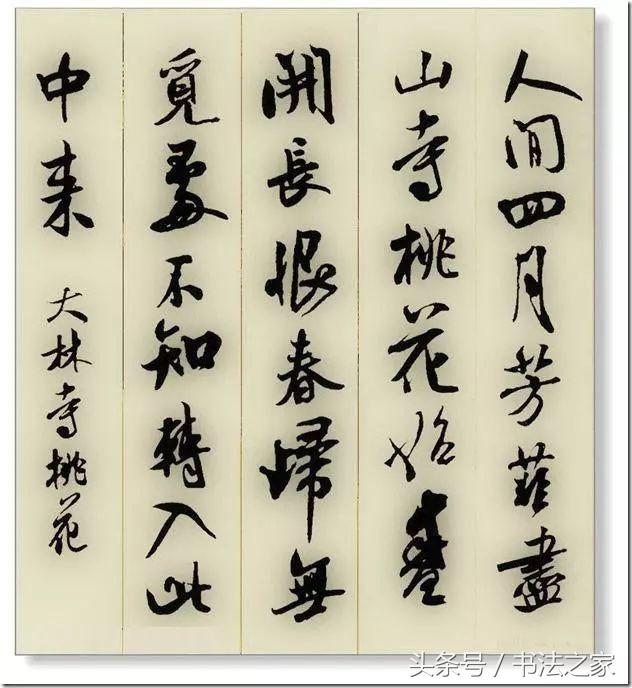 人間四月芳菲盡
山寺桃花始盛
開長恨春歸無
覓處不知轉入此
中来 大林寺桃花
头条号 / 书法之家